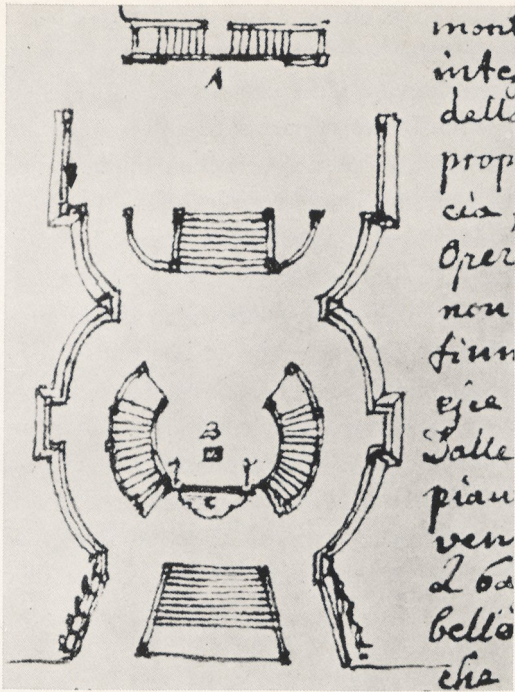 A
B
C
mont
integ
della
prop
cia,
Oper
non
fium
Dalle
pian
ven
bello
che